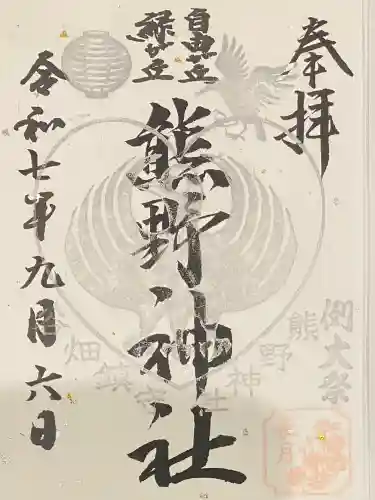 奉拝
自由ヶ丘
緑ヶ丘
熊野神社
令和七年九月六日
例大祭
熊野神社
畑鎮守